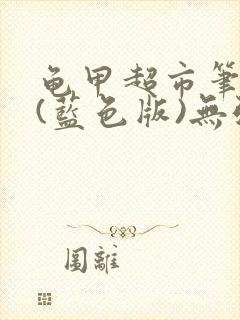 龟甲超市筆
(藍色版)無
圖離